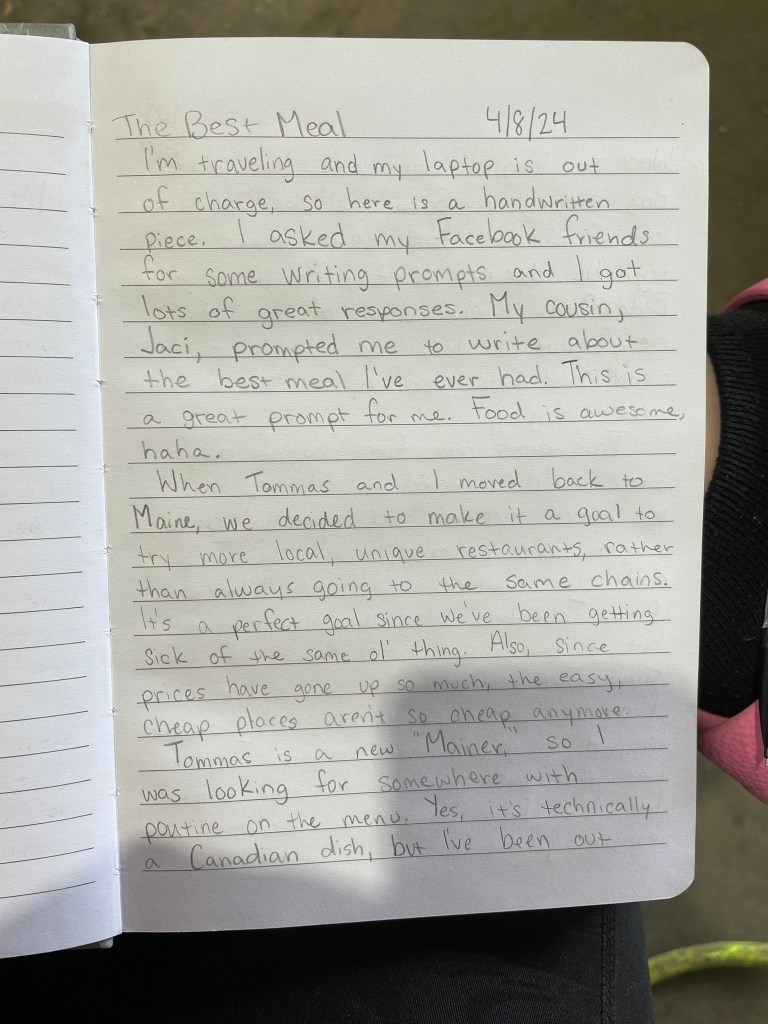 The Best Meal 4/8/24
I'm traveling and my laptop is out
of charge, so here is a handwritten
piece. I asked my Facebook friends
for some writing prompts and I got
lots of great responses. My cousin,
Jaci, prompted me to write about
the best meal I've ever had. This is
a great prompt for me. Food is awesome,
haha.
When Tommas and I moved back to
Maine, we decided to make it a goal to
try more local, unique restaurants, rather
than always going to the same chains.
It's a perfect goal since we've been getting
sick of the same ol' thing. Also, since
prices have gone up so much, the easy,
cheap places aren't so cheap anymore.
Tommas is a new "Mainer," so I
was looking for somewhere with
poutine on the menu. Yes, it's technically
a Canadian dish, but I've been out